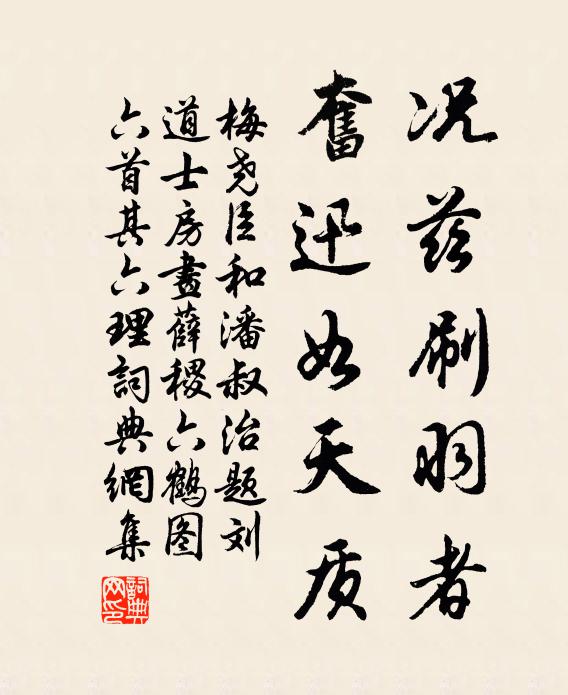 况茲刷羽者
奮迅如天质
梅尧臣和潘叔治题刘
道士房畫薛稷六鶴图
六首其六理詞典網集
詞典
网印